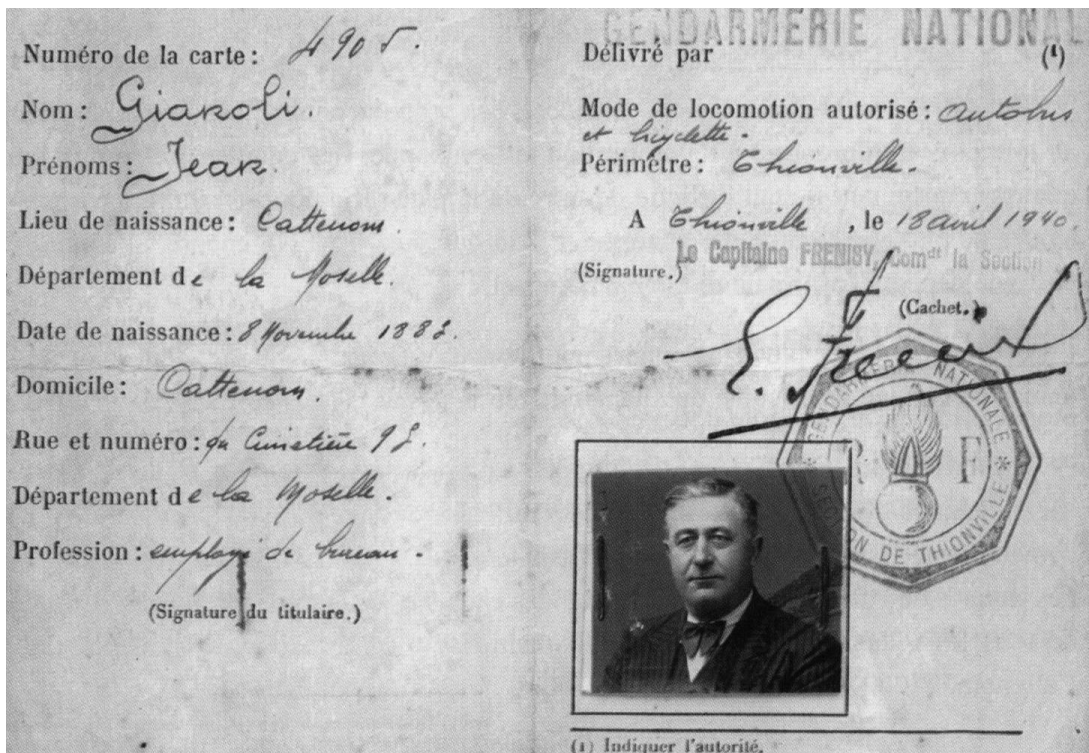 Numéro de la carte : 4905.
Nom : Giaroli.
Prénoms : Jean
Lieu de naissance : Cattenom
Département de la Moselle.
Date de naissance : 8 Novembre 1882.
Domicile : Cattenom.
Rue et numéro : du Cimetière 98.
Département de la Moselle.
Profession : employé de bureau.
(Signature du titulaire.)
GENDARMERIE NATIONAL
Délivré par (1)
Mode de locomotion autorisé : autobus
et bicyclette.
Périmètre : Thionville.
A Thionville, le 18 avril 1940.
Le Capitaine FRENISY, Comdt la Section
(Signature.)
(Cachet.)
GENDARMERIE NATIONALE
R F
SECTION DE THIONVILLE
(1) Indiquer l'autorité.